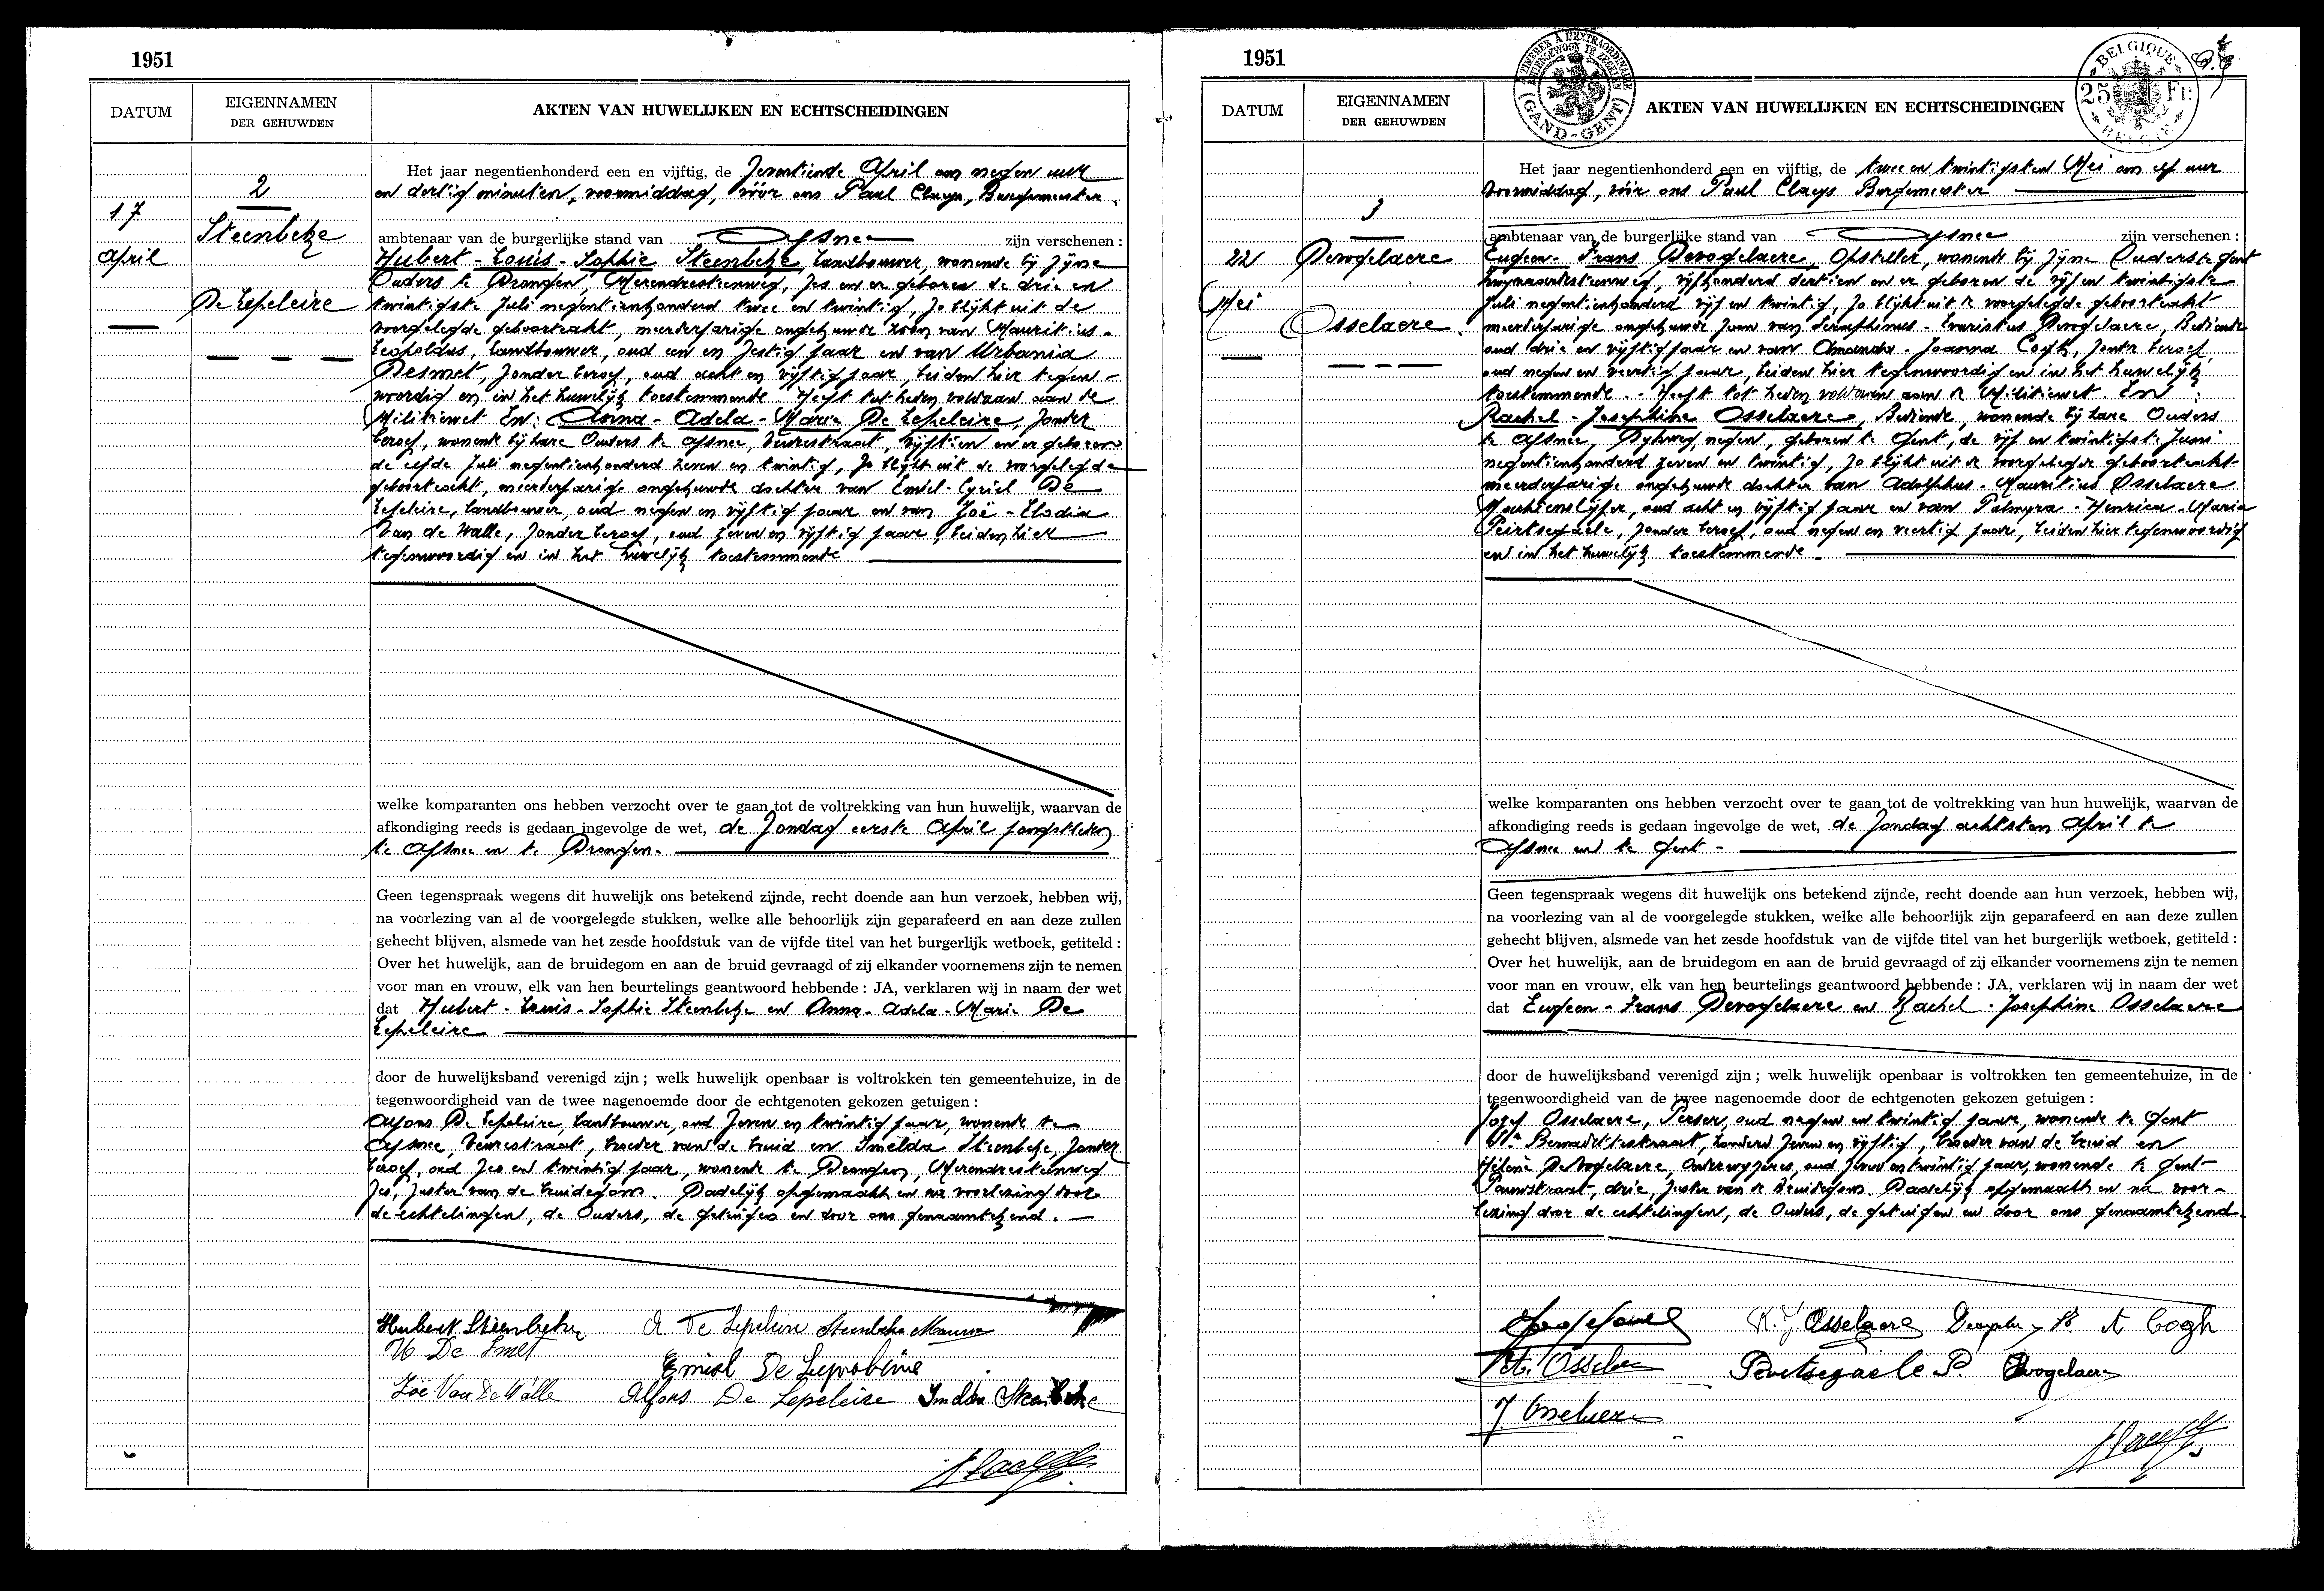 1951
DATUM
EIGENNAMEN
DER GEHUWDEN
AKTEN VAN HUWELIJKEN EN ECHTSCHEIDINGEN
2
17
April
Steenbeke
De Lepeleire
Het jaar negentienhonderd een en vijftig, de Zeventiende April om negen uur
en dertig minuten, voormiddag, vóór ons Paul Claeys, Burgemeester
ambtenaar van de burgerlijke stand van Afsnee zijn verschenen :
Hubert - Louis - Sophie Steenbeke, Landbouwer, wonende bij zijne
Ouders te Drongen, Merendreesteenweg, zes en er geboren de drie en
twintigste Juli negentienhonderd twee en twintig, zo blijkt uit de
voorgelegde geboorteakt, meerderjarige ongehuwde zoon van Mauritius -
Leopoldus, Landbouwer, oud een en zestig jaar en van Urbania
Desmet, zonder beroep, oud acht en vijftig jaar, beiden hier tegen -
woordig en in het huwelijk toestemmende. Heeft tot heden voldaan aan de
Militiewet En: Anna - Adela - Marie De Lepeleire, zonder
beroep, wonende bij hare Ouders te Afsnee, Veurestraat, vijftien en er geboren
de elfde Juli negentienhonderd zeven en twintig, zo blijkt uit de voorgelegde
geboorteakt, meerderjarige ongehuwde dochter van Emiel - Cyriel De
Lepeleire, Landbouwer, oud negen en vijftig jaar en van Zoë - Elodia
Van de Walle, zonder beroep, oud zeven en vijftig jaar, beiden hier
tegenwoordig en in het huwelijk toestemmende
welke komparanten ons hebben verzocht over te gaan tot de voltrekking van hun huwelijk, waarvan de
afkondiging reeds is gedaan ingevolge de wet, de Zondag eerste April jongstleden
te Afsnee en te Drongen.
Geen tegenspraak wegens dit huwelijk ons betekend zijnde, recht doende aan hun verzoek, hebben wij,
na voorlezing van al de voorgelegde stukken, welke alle behoorlijk zijn geparafeerd en aan deze zullen
gehecht blijven, alsmede van het zesde hoofdstuk van de vijfde titel van het burgerlijk wetboek, getiteld :
Over het huwelijk, aan de bruidegom en aan de bruid gevraagd of zij elkander voornemens zijn te nemen
voor man en vrouw, elk van hen beurtelings geantwoord hebbende : JA, verklaren wij in naam der wet
dat Hubert - Louis - Sophie Steenbeke en Anna - Adela - Marie De
Lepeleire
door de huwelijksband verenigd zijn ; welk huwelijk openbaar is voltrokken ten gemeentehuize, in de
tegenwoordigheid van de twee nagenoemde door de echtgenoten gekozen getuigen :
Alfons De Lepeleire, Landbouwer, oud zeven en twintig jaar, wonende te
Afsnee, Veurestraat, broeder van de bruid en Imelda Steenbeke, zonder
beroep, oud zes en twintig jaar, wonende te Drongen, Merendreesteenweg
zes, zuster van de bruidegom. Dadelijk opgemaakt en na voorlezing door
de echtelingen, de Ouders, de getuigen en door ons genaamtekend.
Hubert Steenbeke A De Lepeleire Steenbeke Maurice
U De Smet
Emiel De Lepeleire
Zoë Van De Walle Alfons De Lepeleire Imelda Steenbeke
1951
GAND - GENT
BELGIQUE
25 Fr.
BELGIË
DATUM
EIGENNAMEN
DER GEHUWDEN
AKTEN VAN HUWELIJKEN EN ECHTSCHEIDINGEN
3
22
Mei
Devogelaere
Osselaere
Het jaar negentienhonderd een en vijftig, de twee en twintigsten Mei om elf uur
voormiddag, vóór ons Paul Claeys Burgemeester
ambtenaar van de burgerlijke stand van Afsnee zijn verschenen :
Eugeen - Frans Devogelaere, Opsteller, wonende bij zijne Ouders te Gent
vijfhonderd dertien en er geboren de vijf en twintigste
Juli negentienhonderd vijf en twintig, zo blijkt uit de voorgelegde geboorteakt
meerderjarige ongehuwde zoon van Seraphinus - Evaristus Devogelaere, Bediende
oud drie en vijftig jaar en van Amanda - Joanna Cogh, zonder beroep,
oud negen en veertig jaar, beiden hier tegenwoordig en in het huwelijk
toestemmende. - Heeft tot heden voldaan aan de Militiewet. En :
Rachel - Josephine Osselaere, Bediende, wonende bij hare Ouders
te Afsnee, Pijhweg, negen, geboren te Gent, de vijf en twintigste Juni
negentienhonderd zeven en twintig, zo blijkt uit de voorgelegde geboorteakt
meerderjarige ongehuwde dochter van Adolphus - Mauritius Osselaere
oud acht en vijftig jaar en van Palmyra - Henrica - Maria
Peirtsegaele, zonder beroep, oud negen en veertig jaar, beiden hier tegenwoordig
en in het huwelijk toestemmende -
welke komparanten ons hebben verzocht over te gaan tot de voltrekking van hun huwelijk, waarvan de
afkondiging reeds is gedaan ingevolge de wet, de Zondag achtsten April te
Afsnee en te Gent -
Geen tegenspraak wegens dit huwelijk ons betekend zijnde, recht doende aan hun verzoek, hebben wij,
na voorlezing van al de voorgelegde stukken, welke alle behoorlijk zijn geparafeerd en aan deze zullen
gehecht blijven, alsmede van het zesde hoofdstuk van de vijfde titel van het burgerlijk wetboek, getiteld :
Over het huwelijk, aan de bruidegom en aan de bruid gevraagd of zij elkander voornemens zijn te nemen
voor man en vrouw, elk van hen beurtelings geantwoord hebbende : JA, verklaren wij in naam der wet
dat Eugeen - Frans Devogelaere en Rachel - Josephine Osselaere
door de huwelijksband verenigd zijn ; welk huwelijk openbaar is voltrokken ten gemeentehuize, in de
tegenwoordigheid van de twee nagenoemde door de echtgenoten gekozen getuigen :
Jozef Osselaere, Perser, oud negen en twintig jaar, wonende te Gent
Ste Bernadettestraat, honderd zeven en vijftig, broeder van de bruid en
Hélène Devogelaere, Onderwijzeres, oud zeven en twintig jaar, wonende te Gent
Pauwstraat, drie, zuster van de Bruidegom. Dadelijk opgemaakt en na voor -
lezing door de echtelingen, de Ouders, de getuigen en door ons genaamtekend.
R. J. Osselaere A Cogh
Osselaere Peirtsegaele P. Devogelaere
J Osselaere